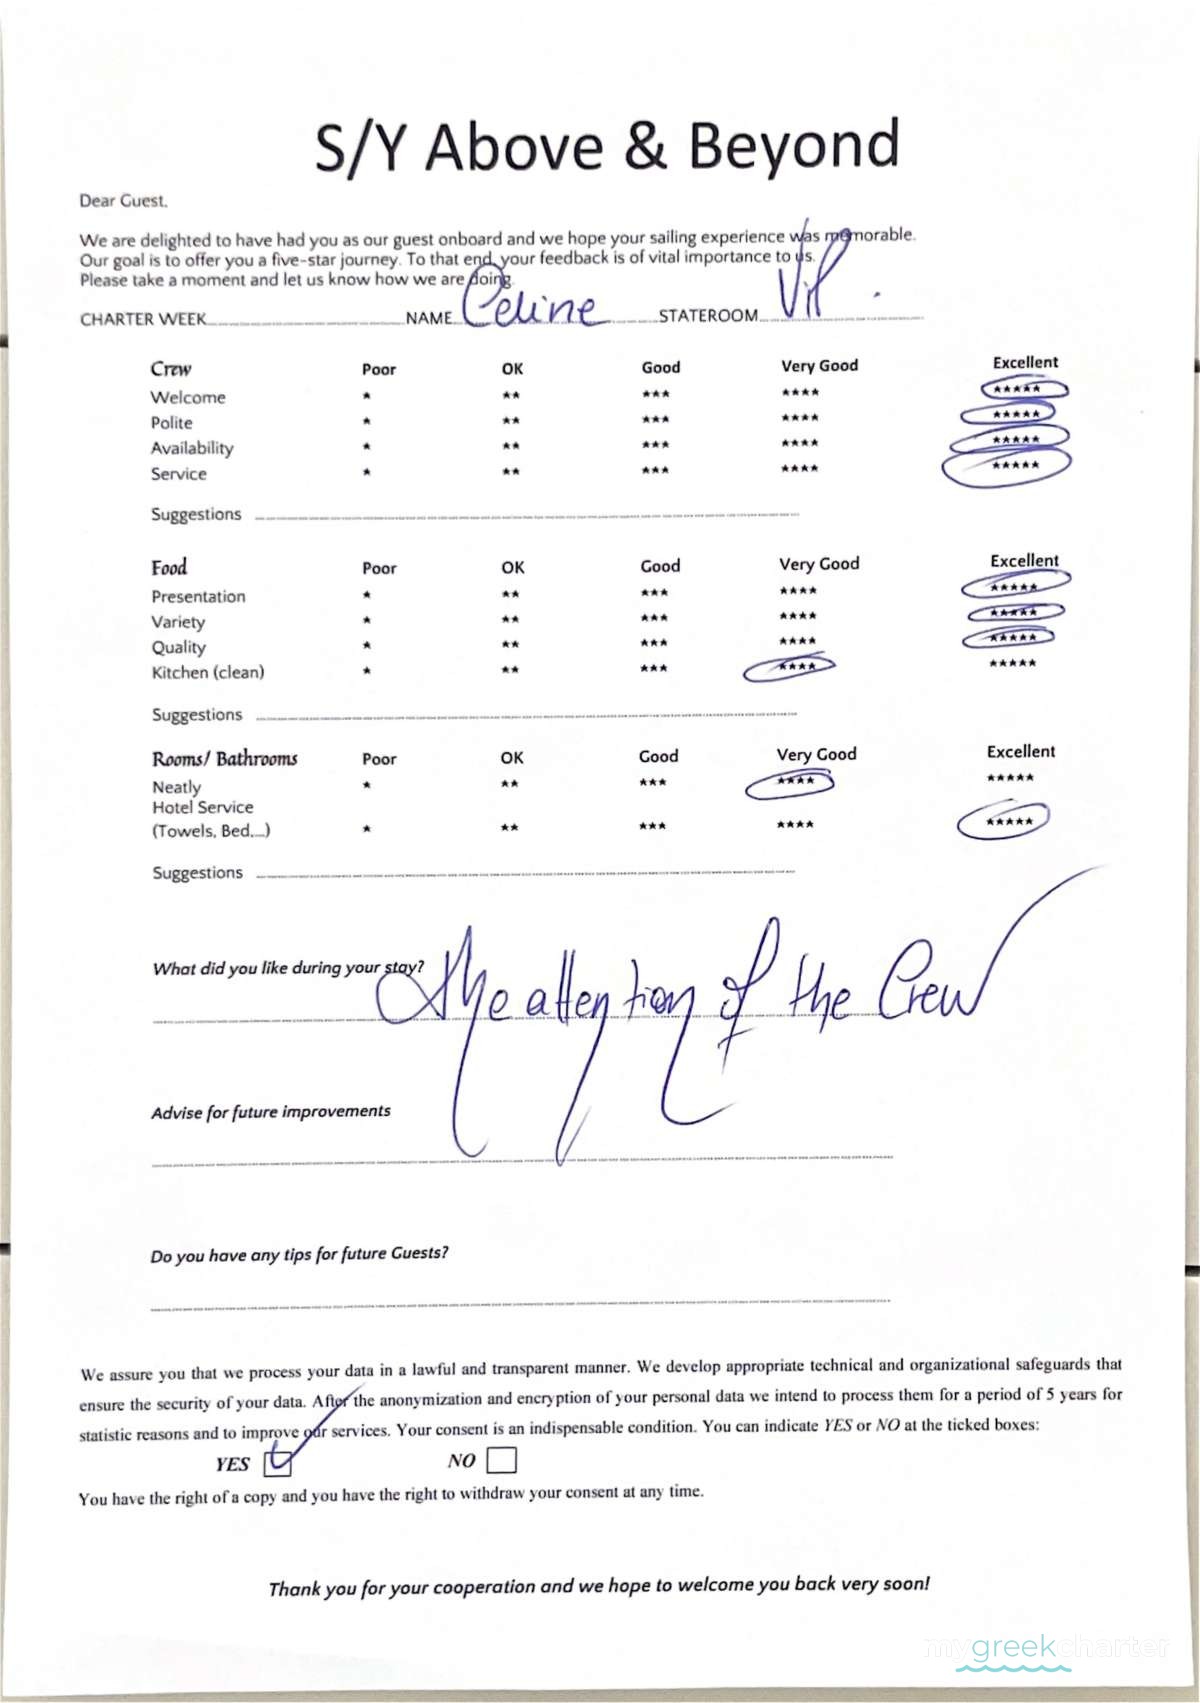 S/Y Above & Beyond
Dear Guest,
We are delighted to have had you as our guest onboard and we hope your sailing experience was memorable.
Our goal is to offer you a five-star journey. To that end, your feedback is of vital importance to us.
Please take a moment and let us know how we are doing.
CHARTER WEEK NAME Celine STATEROOM
Crew Poor OK Good Very Good Excellent
Welcome * ** *** **** *****
Polite * ** *** **** *****
Availability * ** *** **** *****
Service * ** *** **** *****
Suggestions
Food Poor OK Good Very Good Excellent
Presentation * ** *** **** *****
Variety * ** *** **** *****
Quality * ** *** **** *****
Kitchen (clean) * ** *** **** *****
Suggestions
Rooms/ Bathrooms Poor OK Good Very Good Excellent
Neatly * ** *** **** *****
Hotel Service
(Towels, Bed,...) * ** *** **** *****
Suggestions
What did you like during your stay?
The attention of the Crew
Advise for future improvements
Do you have any tips for future Guests?
We assure you that we process your data in a lawful and transparent manner. We develop appropriate technical and organizational safeguards that
ensure the security of your data. After the anonymization and encryption of your personal data we intend to process them for a period of 5 years for
statistic reasons and to improve our services. Your consent is an indispensable condition. You can indicate YES or NO at the ticked boxes:
YES NO
You have the right of a copy and you have the right to withdraw your consent at any time.
Thank you for your cooperation and we hope to welcome you back very soon!
mygreekcharter